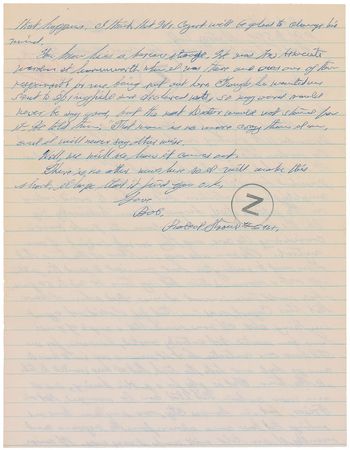 that happens, I think that Mr. will be glad to change his
mind,
You know him a strange, Yet was the associate
warden at Leavenworth when I was there and was one of the
for me being put out here. Though he wanted me
sent to Springfield and declared nuts, so my word would
never be any good, but the nut Doctor would not stand for
it. He told him: That man is no more crazy than I am,
and I will never say otherwise.
Well, we will see how it comes out.
There is no other news here so I will make this
short, I hope that it find you O.K.
Your
Bob.
Robert Stroud #594.
Z